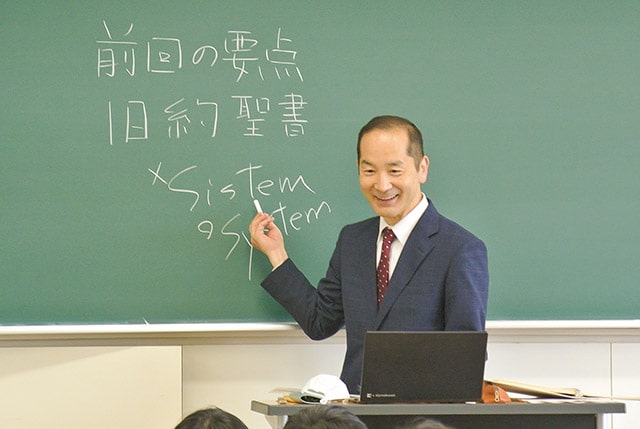 前回の要点
旧約聖書
×Sistem
○System